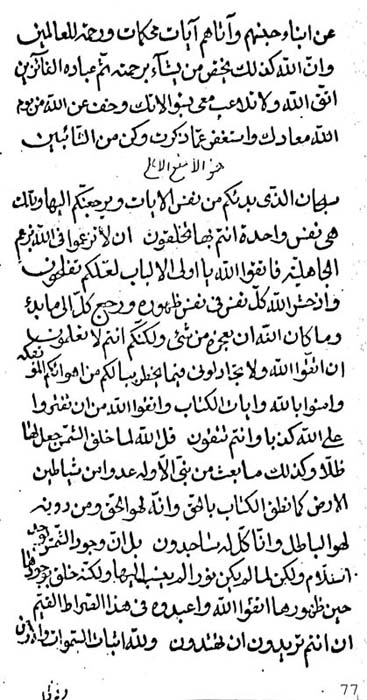 عن ابناء جنسهم وآتاهم آيات محكمات ورحمة للعالمين
وان الله كذلك يختص من يشآء برحمته انهم عباده الفائزين
اتق الله ولا تلاعب معى بسؤالاتك وخف عن الله من يوم
الله معادك واستغفر عما ذكرت وكن من التائبين
هو الأمنع
سبحان الذى بدئكم من نفس الايات ويرجعنكم اليها وتلك
هى نفس واحدة انتم بها تخلقون ان لا تزعموا فى الله بزعم
الجاهلية فاتقوا الله يا اولى الالباب لعلكم تفلحون
كل نفس فى نفس ظهوره ورجع كل الى ما بدء
وما كان الله ان يعجزه من شئ ولكنكم انتم لا تعلمون
ان اتقوا الله ولا تجادلونى فيما يخطر ببالكم من اهوائكم
وامنوا بالله وايات الكتاب واتقوا الله من ان تفتروا
على الله كذبا وانتم تتقون قل الله لما خلق الشمس جعل لها
ظلا وكذلك ما بعث من نبى الا وله عدو ابن شياطين
الارض كما نطق الكتاب بالحق وانه لهو الحق ومن دونه
لهو الباطل وانا كل له ساجدون بل ان وجود الشمس
ولكن لما لم يكن نور لم ينسب اليها ولكنه خلق
حين ظهورها اتقوا الله واعبدوه فى هذا الصراط القيم
ان انتم تريدون ان تهتدون ولله ايات السموات والارض
77